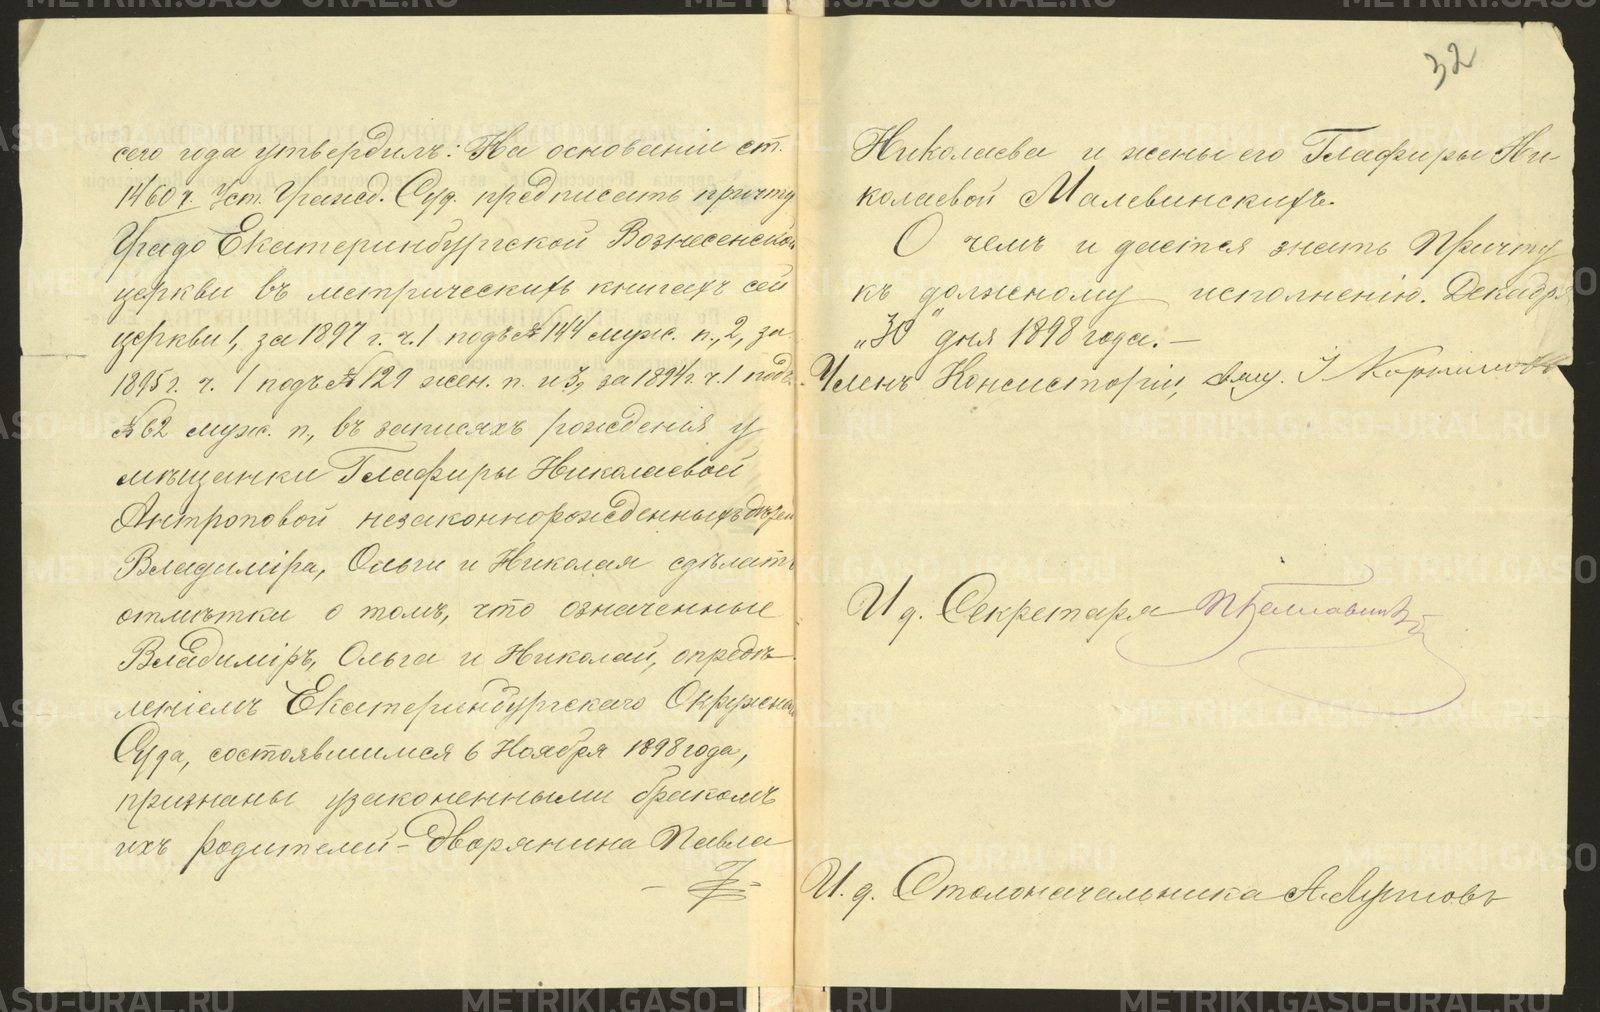 32
сего года утвердилъ: На основаніи ст.
1460 7. Уст. Гражд. Суд. предписать причту
Градо Екатеринбургской Вознесенской
церкви въ метрическихъ книгахъ сей
церкви 1, за 1897 г. ч. 1 подъ № 144 муж. п., 2, за
1895 г. ч. 1 подъ № 129 жен. п. и 3, за 1894 г. ч. 1 подъ
№ 62 муж. п., въ записяхъ рожденія у
мѣщанки Глафиры Николаевой
Антроповой незаконнорожденныхъ дѣтей
Владиміра, Ольги и Николая сдѣлать
отмѣтки о томъ, что означенные
Владиміръ, Ольга и Николай, опредѣ-
леніемъ Екатеринбургскаго Окружнаго
Суда, состоявшимся 6 Ноября 1898 года,
признаны узаконенными бракомъ
ихъ родителей - дворянина Павла
Николаева и жены его Глафиры Ни-
колаевой Малевинскихъ.
О чемъ и дается знать Причту
къ должному исполненію. Декабря
"30" дня 1898 года. —
Членъ Консисторіи, свящ. І.
И д. Секретаря
И. д. Столоначальника А.
METRIKI.GASO-URAL.RU